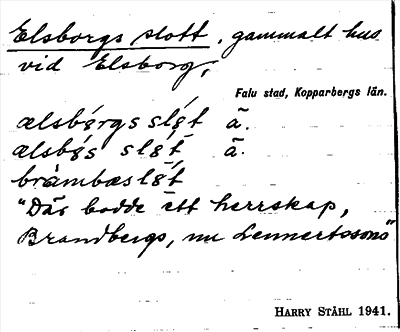 Elsborgs slott, gammalt hus
vid Elsborg,
Falu stad, Kopparbergs län.
ælsbǵrgs slǵt ã.
ælsbǵs slǵt ã.
bràmbæslǵt
"Där bodde ett herrskap,
Brandbergs, nu Lennertssons"
HARRY STÅHL 1941.